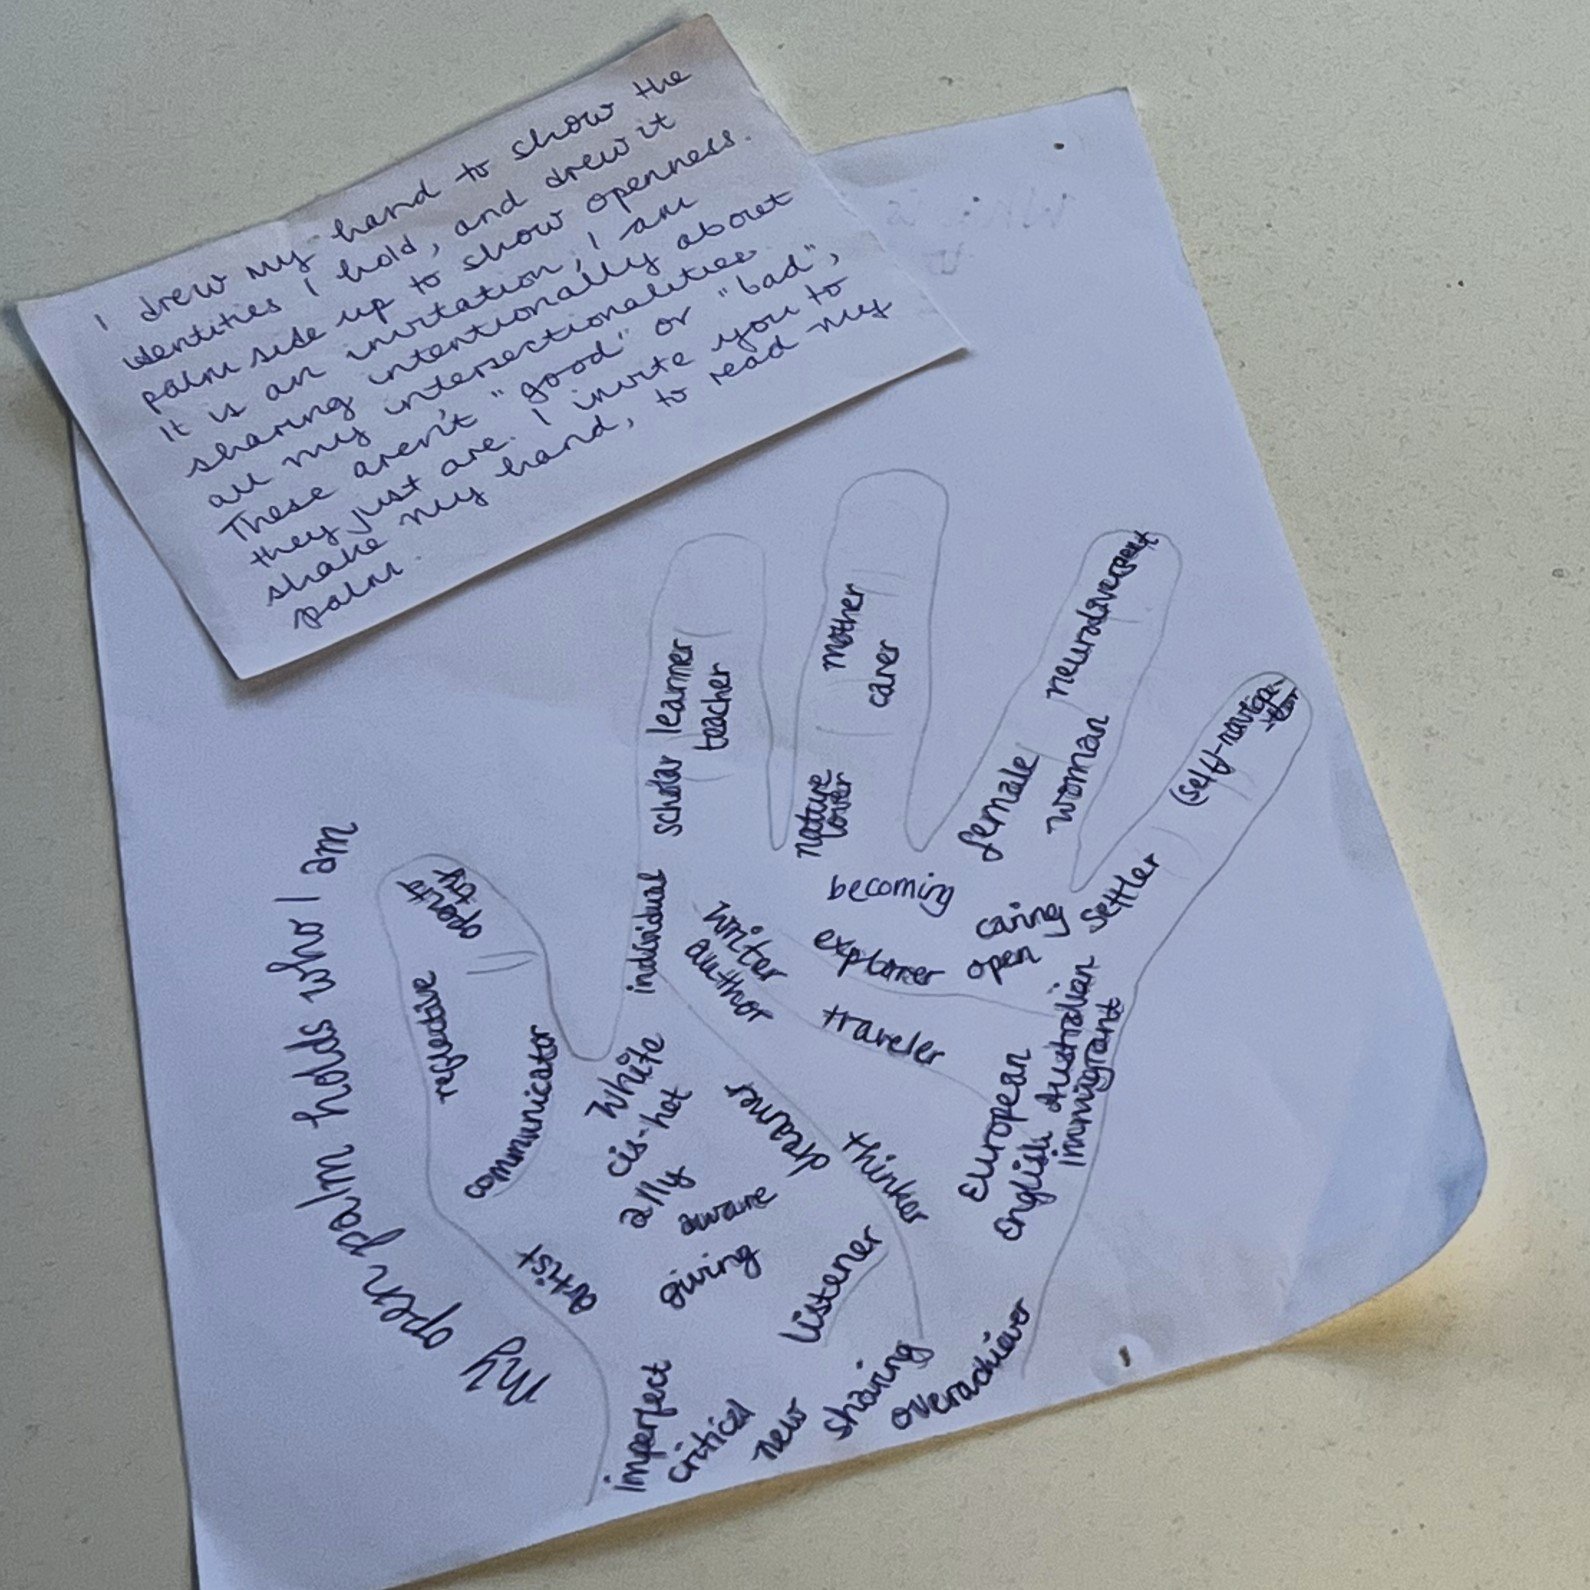 I drew my hand to show the
identities I hold, and drew it
palm side up to show openness.
It is an invitation; I am
sharing intentionally about
all my intersectionalities
These aren't "good" or "bad",
they just are. I invite you to
shake my hand, to read my
palm.
My open palm holds who I am
reflective
communicator
artist
scholar learner
teacher
individual
mother
carer
nature
lover
neurodivergent
female
woman
(self)-naviga-
settler
becoming
caring
open
explorer
traveler
writer
author
European
English Australian
immigrant
White
cis-het
ally
aware
giving
dreamer
thinker
listener
imperfect
critical
new
sharing
overachiever